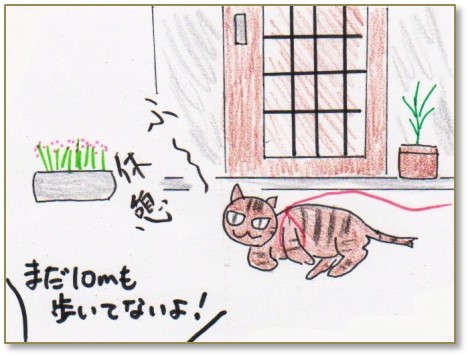 ふぅ
休憩
まだ10mも
歩いてないよ!